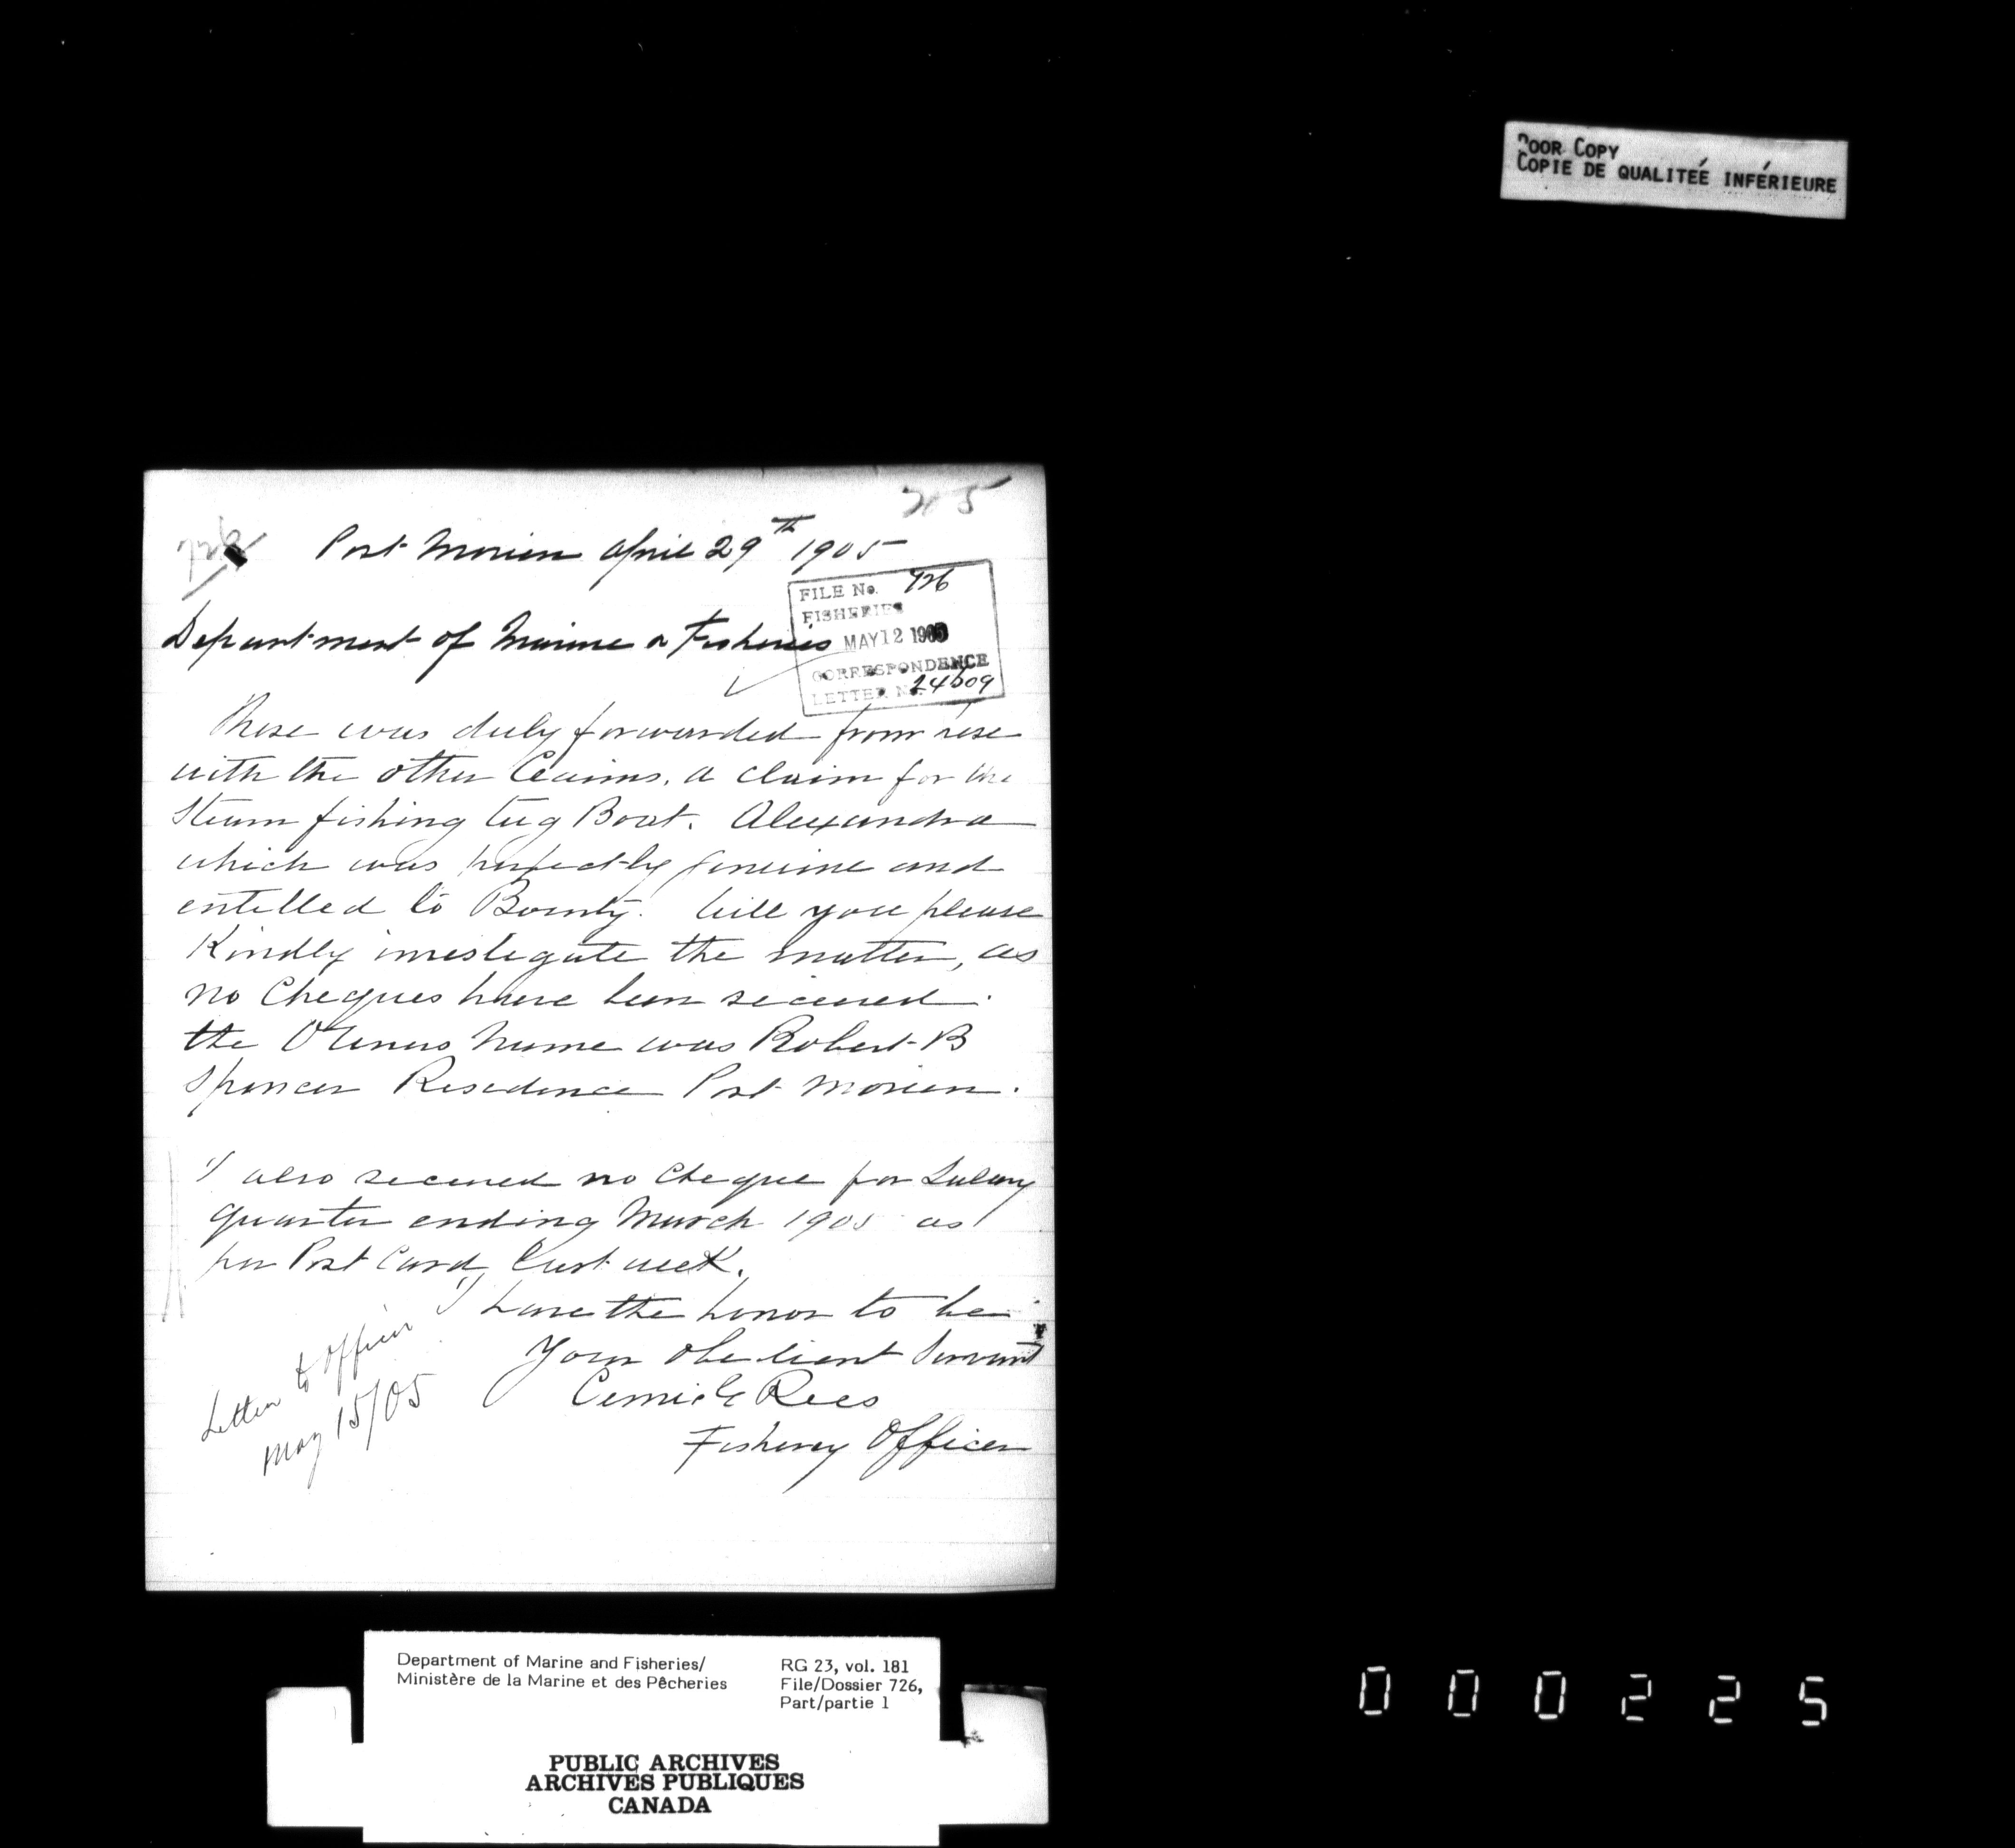 POOR COPY
COPIE DE QUALITÉE INFÉRIEURE
205
726
Port Morien April 29th 1905
FILE No. 726
FISHERIES
Department of Marine & Fisheries
MAY 12 1905
CORRESPONDENCE
LETTER No.
There was duly forwarded from here
with the other Claims, a claim for the
Steam fishing tug Boat. Alexandra
which was perfectly genuine and
entilled to Bounty. Will you please
Kindly investigate the matter, as
no Cheques have been received.
the Owners Name was Robert B
Spencer Residence Port Morien.
I also received no Cheque for Salary
quarter ending March 1905 as
per Post Card last week.
I have the honor to be
Your obedient Servant
Rees
Fishery Officer
Letter to Officer
May 15/05
Department of Marine and Fisheries/
Ministère de la Marine et des Pêcheries
RG 23, vol. 181
File/Dossier 726,
Part/partie 1
PUBLIC ARCHIVES
ARCHIVES PUBLIQUES
CANADA
000225